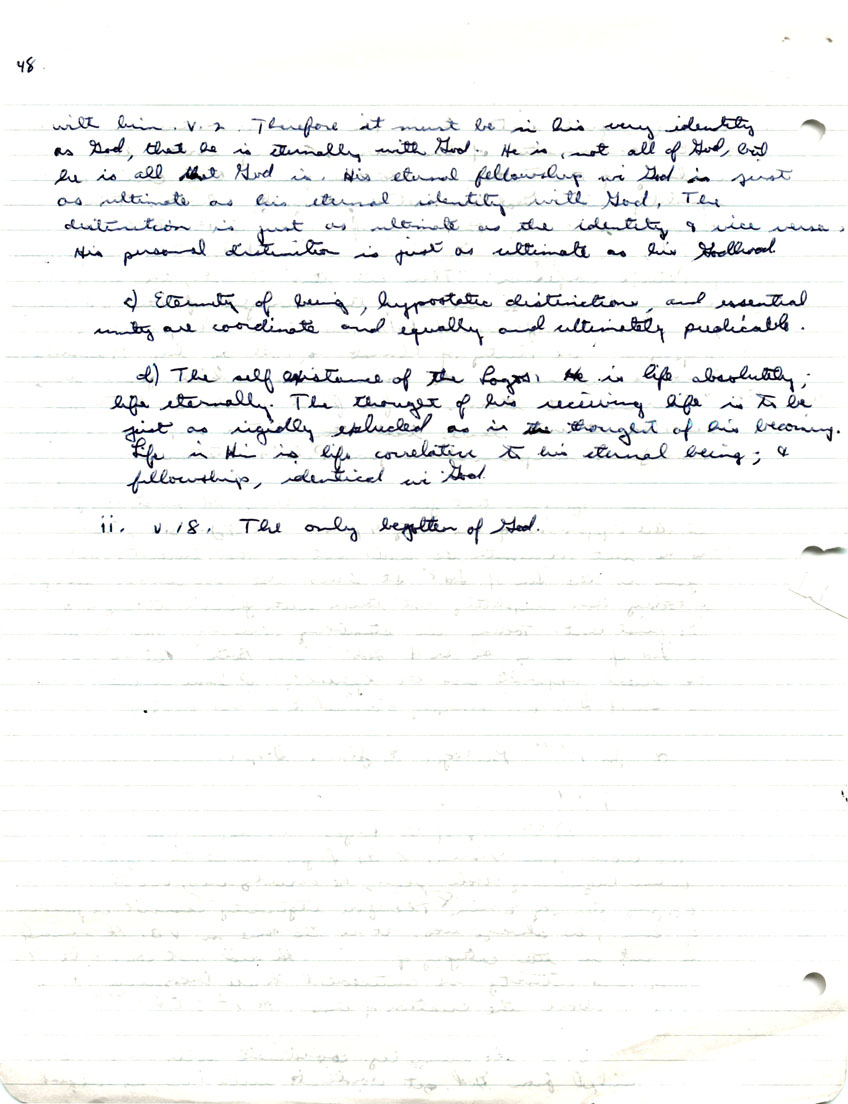 48
with him. v. 2. Therefore it must be in his very identity
as God, that he is eternally with God. He is, not all of God, but
he is all that God is. His eternal fellowship wi God is just
as ultimate as his eternal identity with God. The
distinction is just as ultimate as the identity & vice versa.
His personal distinction is just as ultimate as his Godhood.
c) Eternity of being, hypostatic distinction, and essential
unity are coordinate and equally and ultimately predicable.
d) The self existance of the Logos. He is life absolutely;
life eternally. The thought of his receiving life is to be
just as rigidly excluded as is the thought of his becoming.
Life in Him is life correlative to his eternal being; &
fellowship, identical wi God.
ii. v. 18. The only begotten of God.